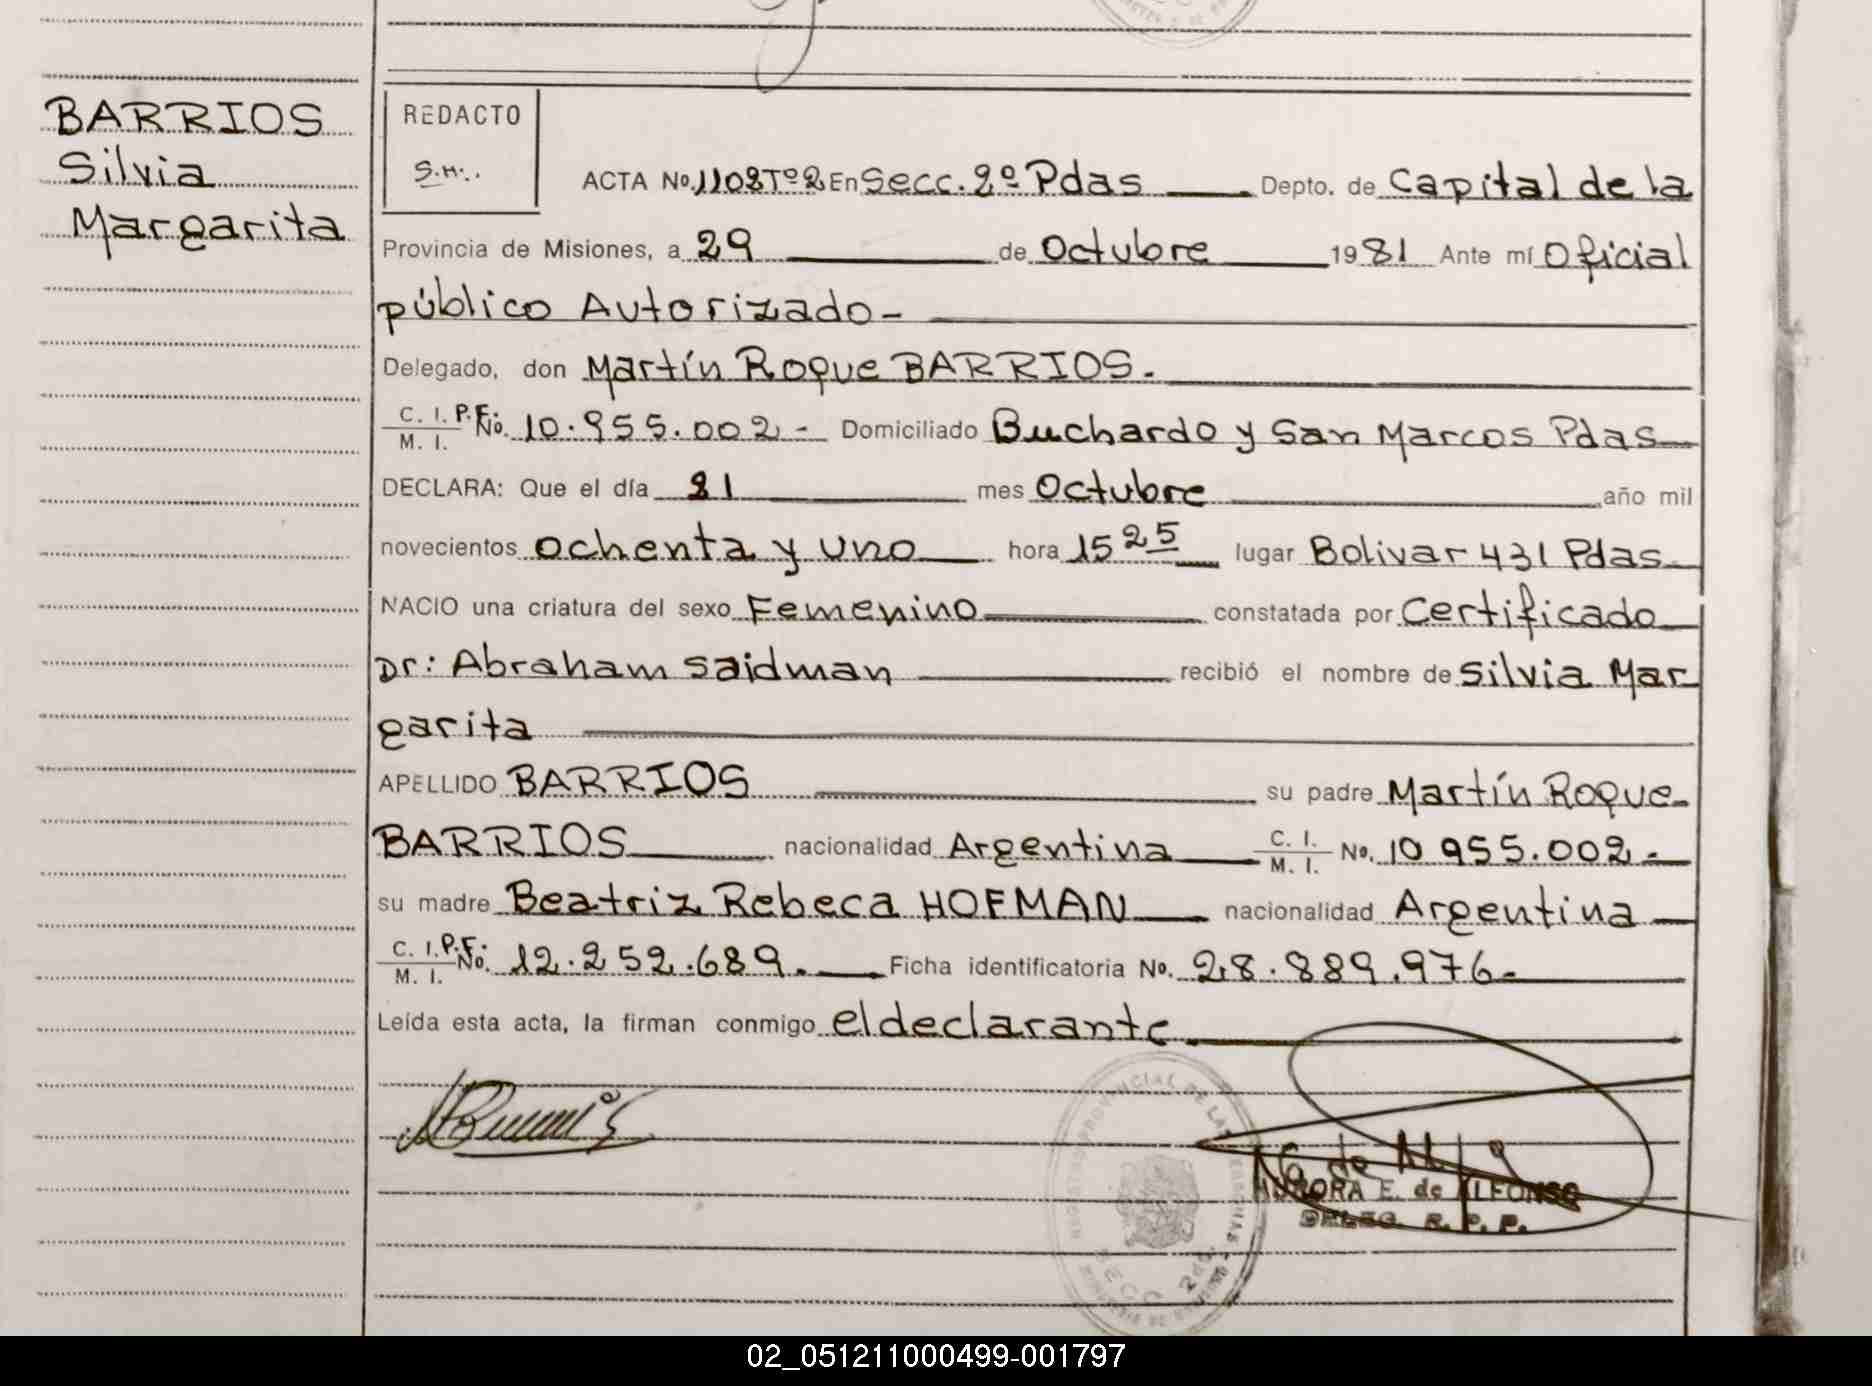 BARRIOS
Silvia
Margarita
REDACTO
S.H.
ACTA No. 1102 Tº 2 En Secc. 2º Pdas Depto. de Capital de la
Provincia de Misiones, a 29 de Octubre 1981 Ante mí Oficial
público Autorizado-
Delegado, don Martín Roque BARRIOS.
C. I. P.F. M. I. No. 10.955.002- Domiciliado Buchardo y San Marcos Pdas
DECLARA: Que el día 21 mes Octubre año mil
novecientos ochenta y uno hora 15 25 lugar Bolivar 431 Pdas
NACIO una criatura del sexo Femenino constatada por Certificado
Dr: Abraham Saidman recibió el nombre de Silvia Mar
garita
APELLIDO BARRIOS su padre Martín Roque
BARRIOS nacionalidad Argentina C. I. M. I. No. 10 955.002.-
su madre Beatriz Rebeca HOFMAN nacionalidad Argentina
C. I. P.F. M. I. No. 12.252.689. Ficha identificatoria No. 28.889.976-
Leída esta acta, la firman conmigo el declarante
AURORA E. de ALFONSO
DELEG. R. P. P.
02_051211000499-001797